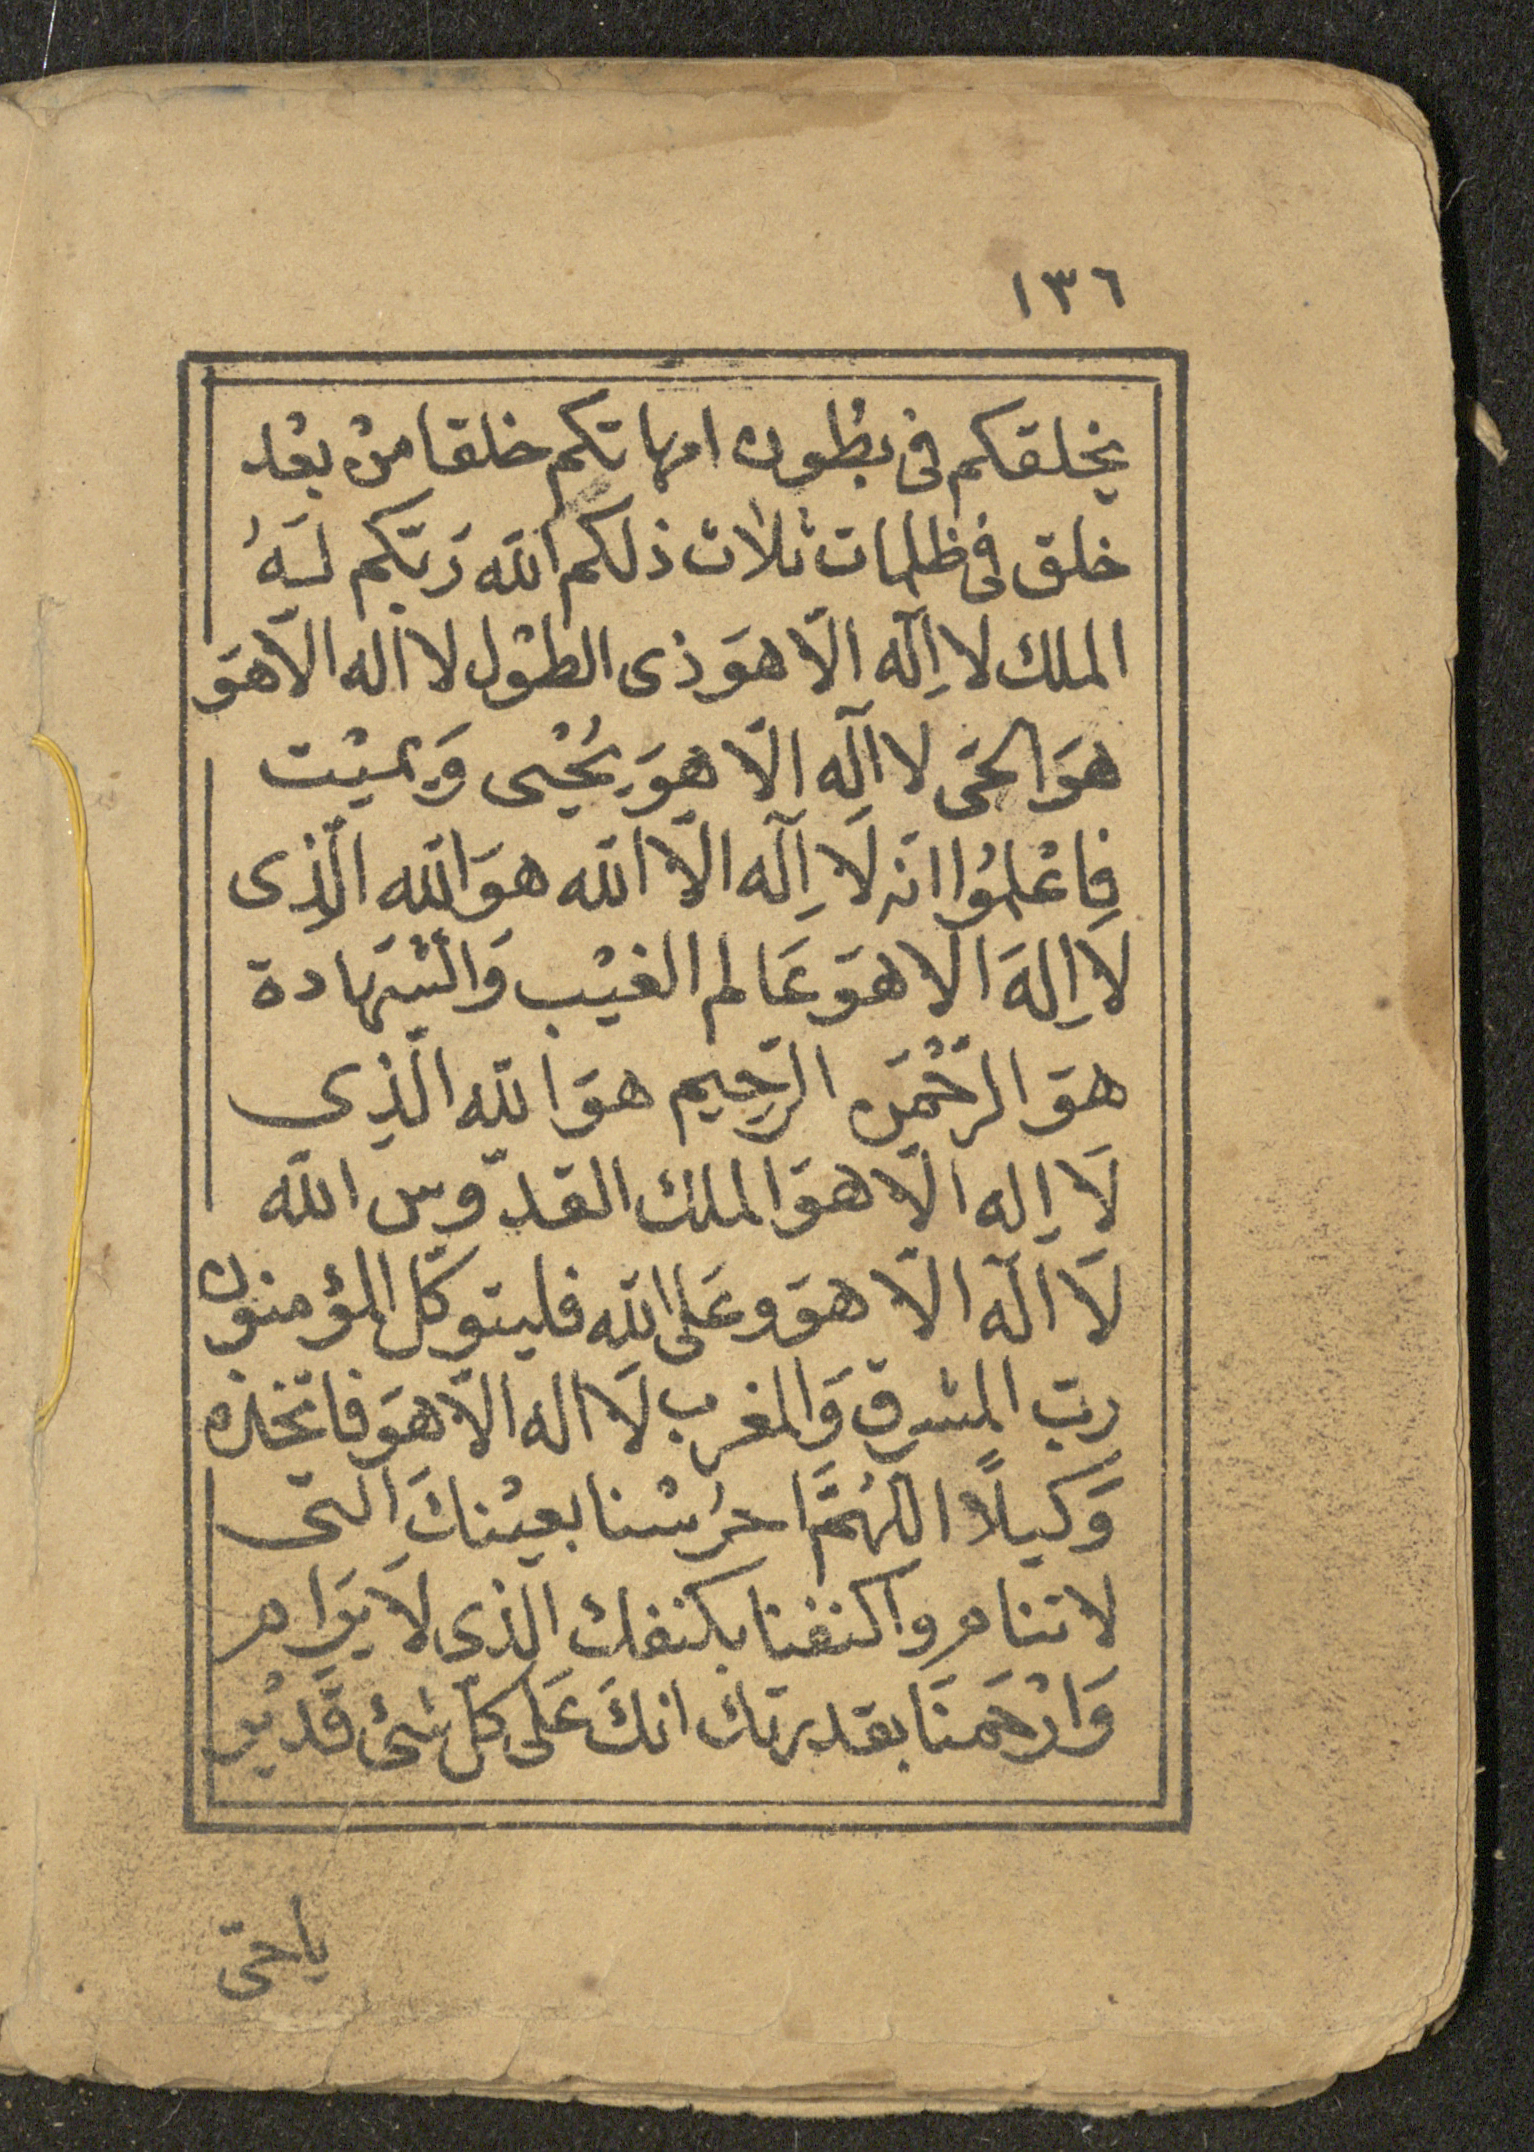 ١٣٦
يخلقكم فى بطُون امهاتكم خلقا منْ بعْد
خلق فى ظلمات ثلاث ذلكم الله رَبّكم لَهُ
الملك لا اِلٓه الّا هوَ ذى الطوْل لا اله الّا هوَ
هوَ الحَى لا الٓه الّا هوَ يُحْيى وَيميْت
فاعْلمُوا انّه لَا اِلٓه الّا الله هوَ الله الّذِى
لَا اِلهَ الّا هوَ عَالم الغيْب وَالشّهادة
هوَ الرّحْمَن الرّحِيم هوَ الله الّذِى
لَا اِله الّا هوَ الملك القدّوس الله
لَا الٓه الّا هوَ وعَلى الله فليتوكّل المؤمنون
ربّ المشرق وَالمغرب لَا اله الّا هوَ فاتّخذه
وَكيلًا اللّهُمَّ احرُسْنا بعيْنكَ الّتى
لا تنام واكنفنا بكنفك الذى لَا يرَام
وَارْحَمنَا بقدرتك انكَ عَلى كلّ شئ قَديْر
ياحىّ